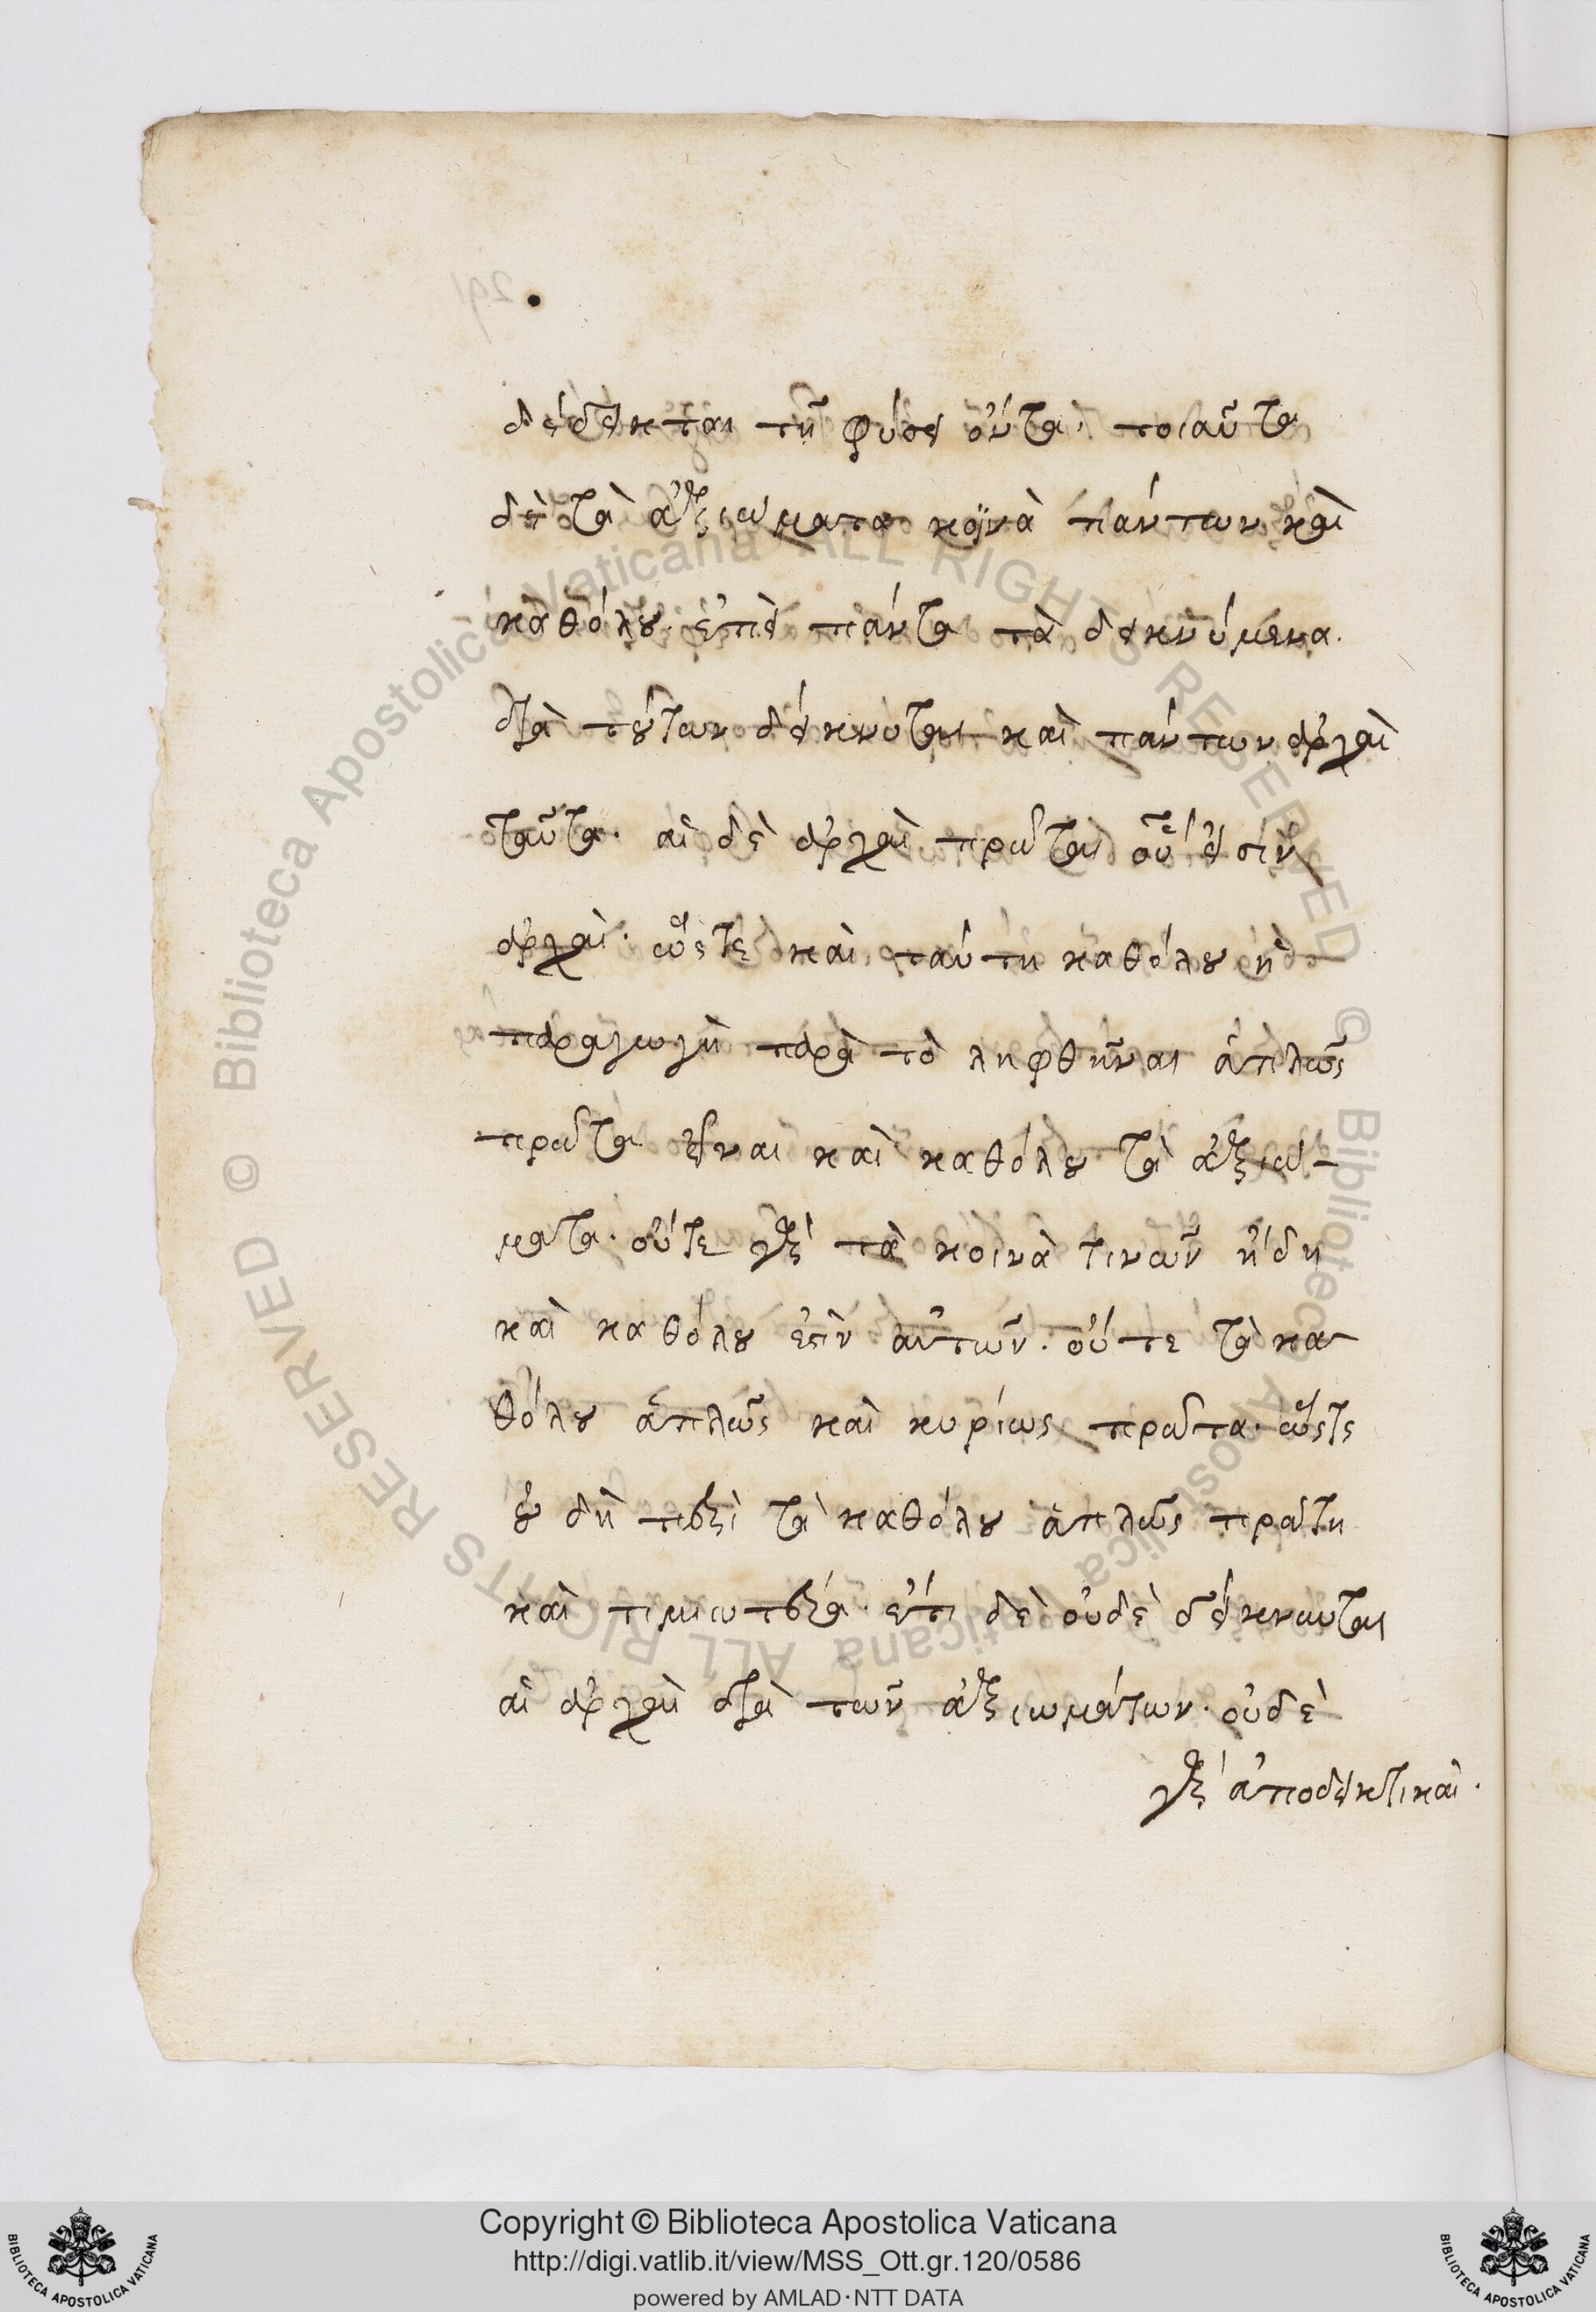 291
δέδεικται τῇ φύσει ὄντα· τοιαῦτα
δὲ τὰ ἀξιώματα κοϊνὰ πάντων καὶ
καθόλου· ἐπεὶ πάντα τὰ δεικνύμενα
διὰ τούτων δείκνυται καὶ πάντων ἀρχαὶ
ταῦτα· αἱ δὲ ἀρχαὶ πρῶται οὗ εἰσὶν
ἀρχαί· ὥστε καὶ ταύτῃ καθόλου ἡ
παραγωγὴ παρὰ τὸ ληφθῆναι ἁπλῶς
πρῶτα εἶναι καὶ καθόλου τὰ ἀξιώ-
ματα· οὔτε γὰρ τὰ κοινὰ τινῶν ἤδη
καὶ καθόλου ἐστὶν αὐτῶν· οὔτε τὰ κα
θόλου ἁπλῶς καὶ κυρίως πρῶτα· ὥστε
οὐ δὴ περὶ τὰ καθόλου ἁπλῶς πρώτη
καὶ τιμιωτέρα· ἔτι δὲ οὐδὲ δείκνυνται
αἱ ἀρχαὶ διὰ τῶν ἀξιωμάτων· οὐδὲ
γὰρ ἀποδεικτικαί·
© Biblioteca Apostolica Vaticana ALL RIGHTS RESERVED
© Biblioteca Apostolica Vaticana ALL RIGHTS RESERVED
Copyright © Biblioteca Apostolica Vaticana
http://digi.vatlib.it/view/MSS_Ott.gr.120/0586
powered by AMLAD·NTT DATA
BIBLIOTECA APOSTOLICA VATICANA
BIBLIOTECA APOSTOLICA VATICANA